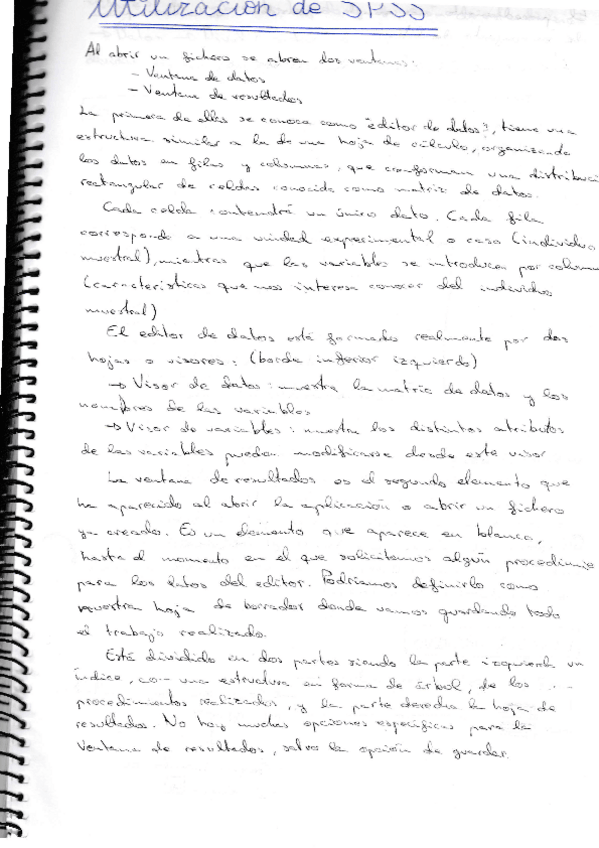 Utilización de SPSS
Al abrir un fichero se abren dos ventanas:
- Ventana de datos
- Ventana de resultados
La primera de ellas se conoce como "editor de datos", tiene una
estructura similar a la de una hoja de cálculo, organizando
los datos en filas y columnas, que conforman una distribuci
rectangular de celdas conocida como matriz de datos.
Cada celda contendrá un único dato. Cada fila
corresponde a una unidad experimental o caso (individuo
muestral), mientras que las variables se introducen por column
(características que nos interesa conocer del individuo
muestral)
El editor de datos está formado realmente por dos
hojas o visores: (borde inferior izquierdo)
→ Visor de datos: muestra la matriz de datos y los
nombres de las variables
→ Visor de variables: muestra los distintos atributos
de las variables pueden modificarse desde este visor
La ventana de resultados es el segundo elemento que
ha aparecido al abrir la aplicación o abrir un fichero
ya creado. Es un elemento que aparece en blanco,
hasta el momento en el que solicitemos algún procedimie
para los datos del editor. Podríamos definirlo como
nuestra hoja de borrador donde vamos guardando todo
el trabajo realizado.
Está dividido en dos partes siendo la parte izquierda un
índice, con una estructura en forma de árbol, de los
procedimientos realizados, y la parte derecha la hoja de
resultados. No hay muchas opciones específicas para la
Ventana de resultados, salvo la opción de guardar.